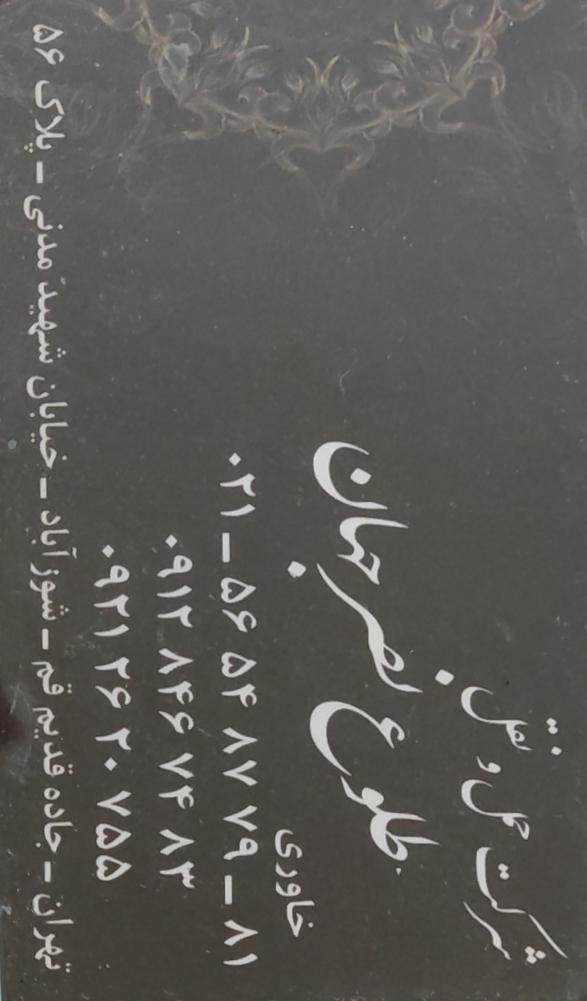 شرکت حمل و نقل
طلوع فجر جهان
خاوری
۰۲۱ – ۵۶ ۵۴ ۸۷ ۷۹ – ۸۱
۰۹۱۲ ۸۴۶ ۷۴ ۸۳
۰۹۲۱ ۲۶ ۲۰ ۷۵۵
تهران - جاده قدیم قم - شورآباد - خیابان شهید مدنی - پلاک ۵۶